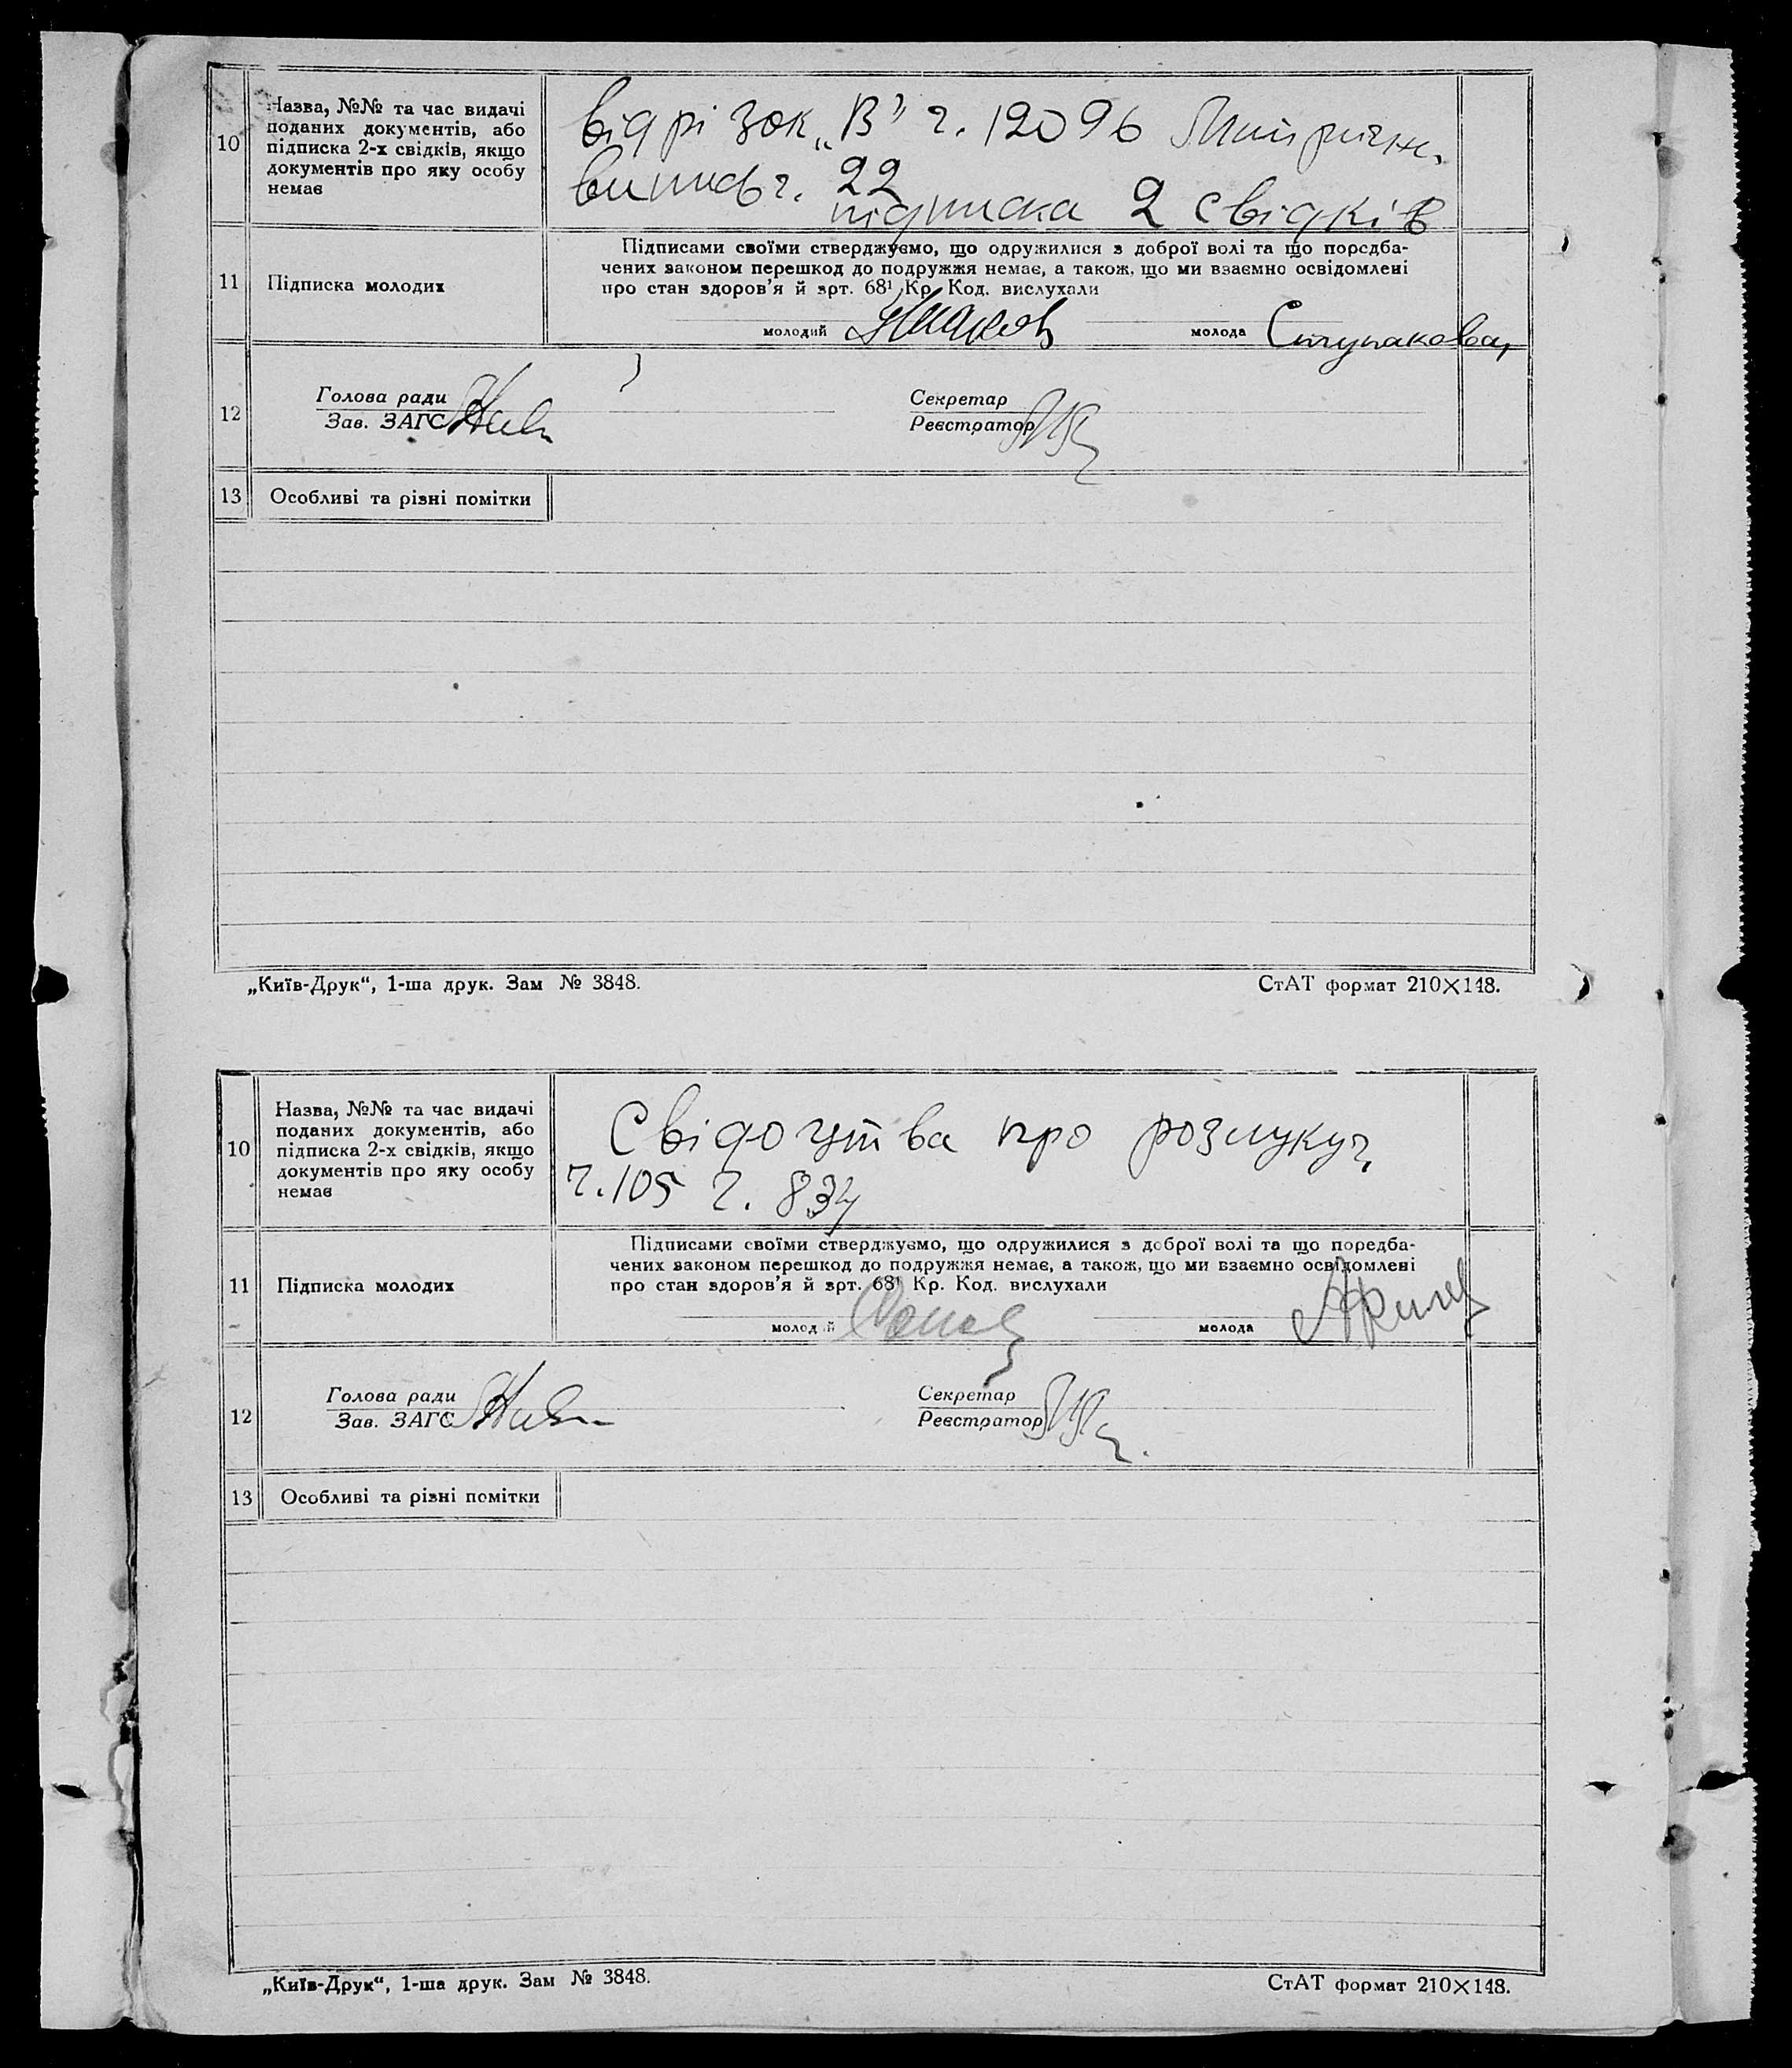 10
Назва, №№ та час видачі
поданих документів, або
підписка 2-х свідків, якщо
документів про яку особу
немає
відрізок „В" ч. 12096
ч. 22
підписка 2 свідків
11
Підписка молодих
Підписами своїми стверджуємо, що одружилися з доброї волі та що передба-
чених законом перешкод до подружжя немає, а також, що ми взаємно освідомлені
про стан здоров'я й арт. 68¹ Кр. Код. вислухали
молодий молода Ступакова
12
Голова ради
Зав. ЗАГС
Секретар
Реєстратор
13 Особливі та різні помітки
„Київ-Друк“, 1-ша друк. Зам № 3848. СтАТ формат 210×148.
10
Назва, №№ та час видачі
поданих документів, або
підписка 2-х свідків, якщо
документів про яку особу
немає
Свідоцтва про розлуку
ч. 105 ч. 834
11
Підписка молодих
Підписами своїми стверджуємо, що одружилися з доброї волі та що поредба-
чених законом перешкод до подружжя немає, а також, що ми взаємно освідомлені
про стан здоров'я й арт. 68¹ Кр. Код. вислухали
молодий молода
12
Голова ради
Зав. ЗАГС
Секретар
Реєстратор
13 Особливі та різні помітки
„Київ-Друк“, 1-ша друк. Зам № 3848. СтАТ формат 210×148.